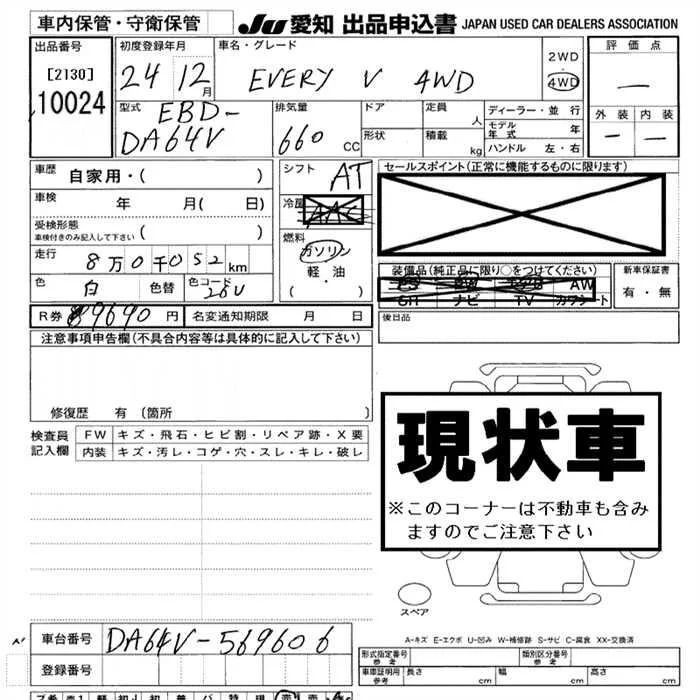 車内保管・守衛保管
JU 愛知 出品申込書 JAPAN USED CAR DEALERS ASSOCIATION
出品番号
[2130]
10024
初度登録年月
24 12 月
車名・グレード
EVERY V 4WD
2WD
4WD
評価点
—
型式
EBD-
DA64V
排気量
660 CC
ドア
定員
人
形状
積載
kg
ディーラー・並行
モデル年式 年
ハンドル 左・右
外装 内装
— —
車歴 自家用・( )
車検 年 月( 日)
受検形態
車検付きのみ記入して下さい ( )
走行 8万0千052km
色 白 色替 色コード 26U
シフト AT
冷房 AAC
燃料
ガソリン
軽・油
( ・ )
セールスポイント(正常に機能するものに限ります)
装備品(純正品に限り○をつけてください)
PS PW AW
SR ナビ TV カワシート
新車保証書
有・無
R券 9690 円 名変通知期限 月 日
後日品
注意事項申告欄(不具合内容等は具体的に記入して下さい)
修復歴 有 (箇所 )
検査員記入欄
FW キズ・飛石・ヒビ割・リペア跡・X要
内装 キズ・汚レ・コゲ・穴・スレ・キレ・破レ
現状車
※このコーナーは不動車も含み
ますのでご注意下さい
スペア
A-キズ E-エクボ U-凹み W-補修跡 S-サビ C-腐食 XX-交換済
車台番号 DA64V-569606
登録番号
形式指定番号
参考
類別区分番号
参考
車庫証明用
参考
長さ cm 幅 cm 高さ cm